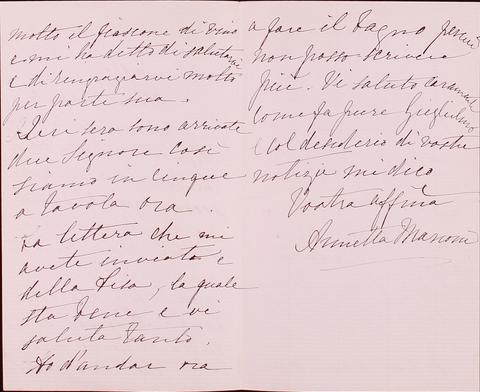 molto il fiascone di vino
e mi ha detto di salutarvi
e di ringraziarvi molto
per parte sua.
Ieri sera sono arrivate
due Signore così
siamo in cinque
a tavola ora.
La lettera che mi
avete inviata è
della Lisa, la quale
sta bene e vi
saluta tanto.
Ho d'andar ora
a fare il bagno perciò
non posso scrivere
più. Vi saluto caramente
come fa pure Guglielmo
e col desiderio di vostre
notizie mi dico
Vostra affma
Annetta Marconi